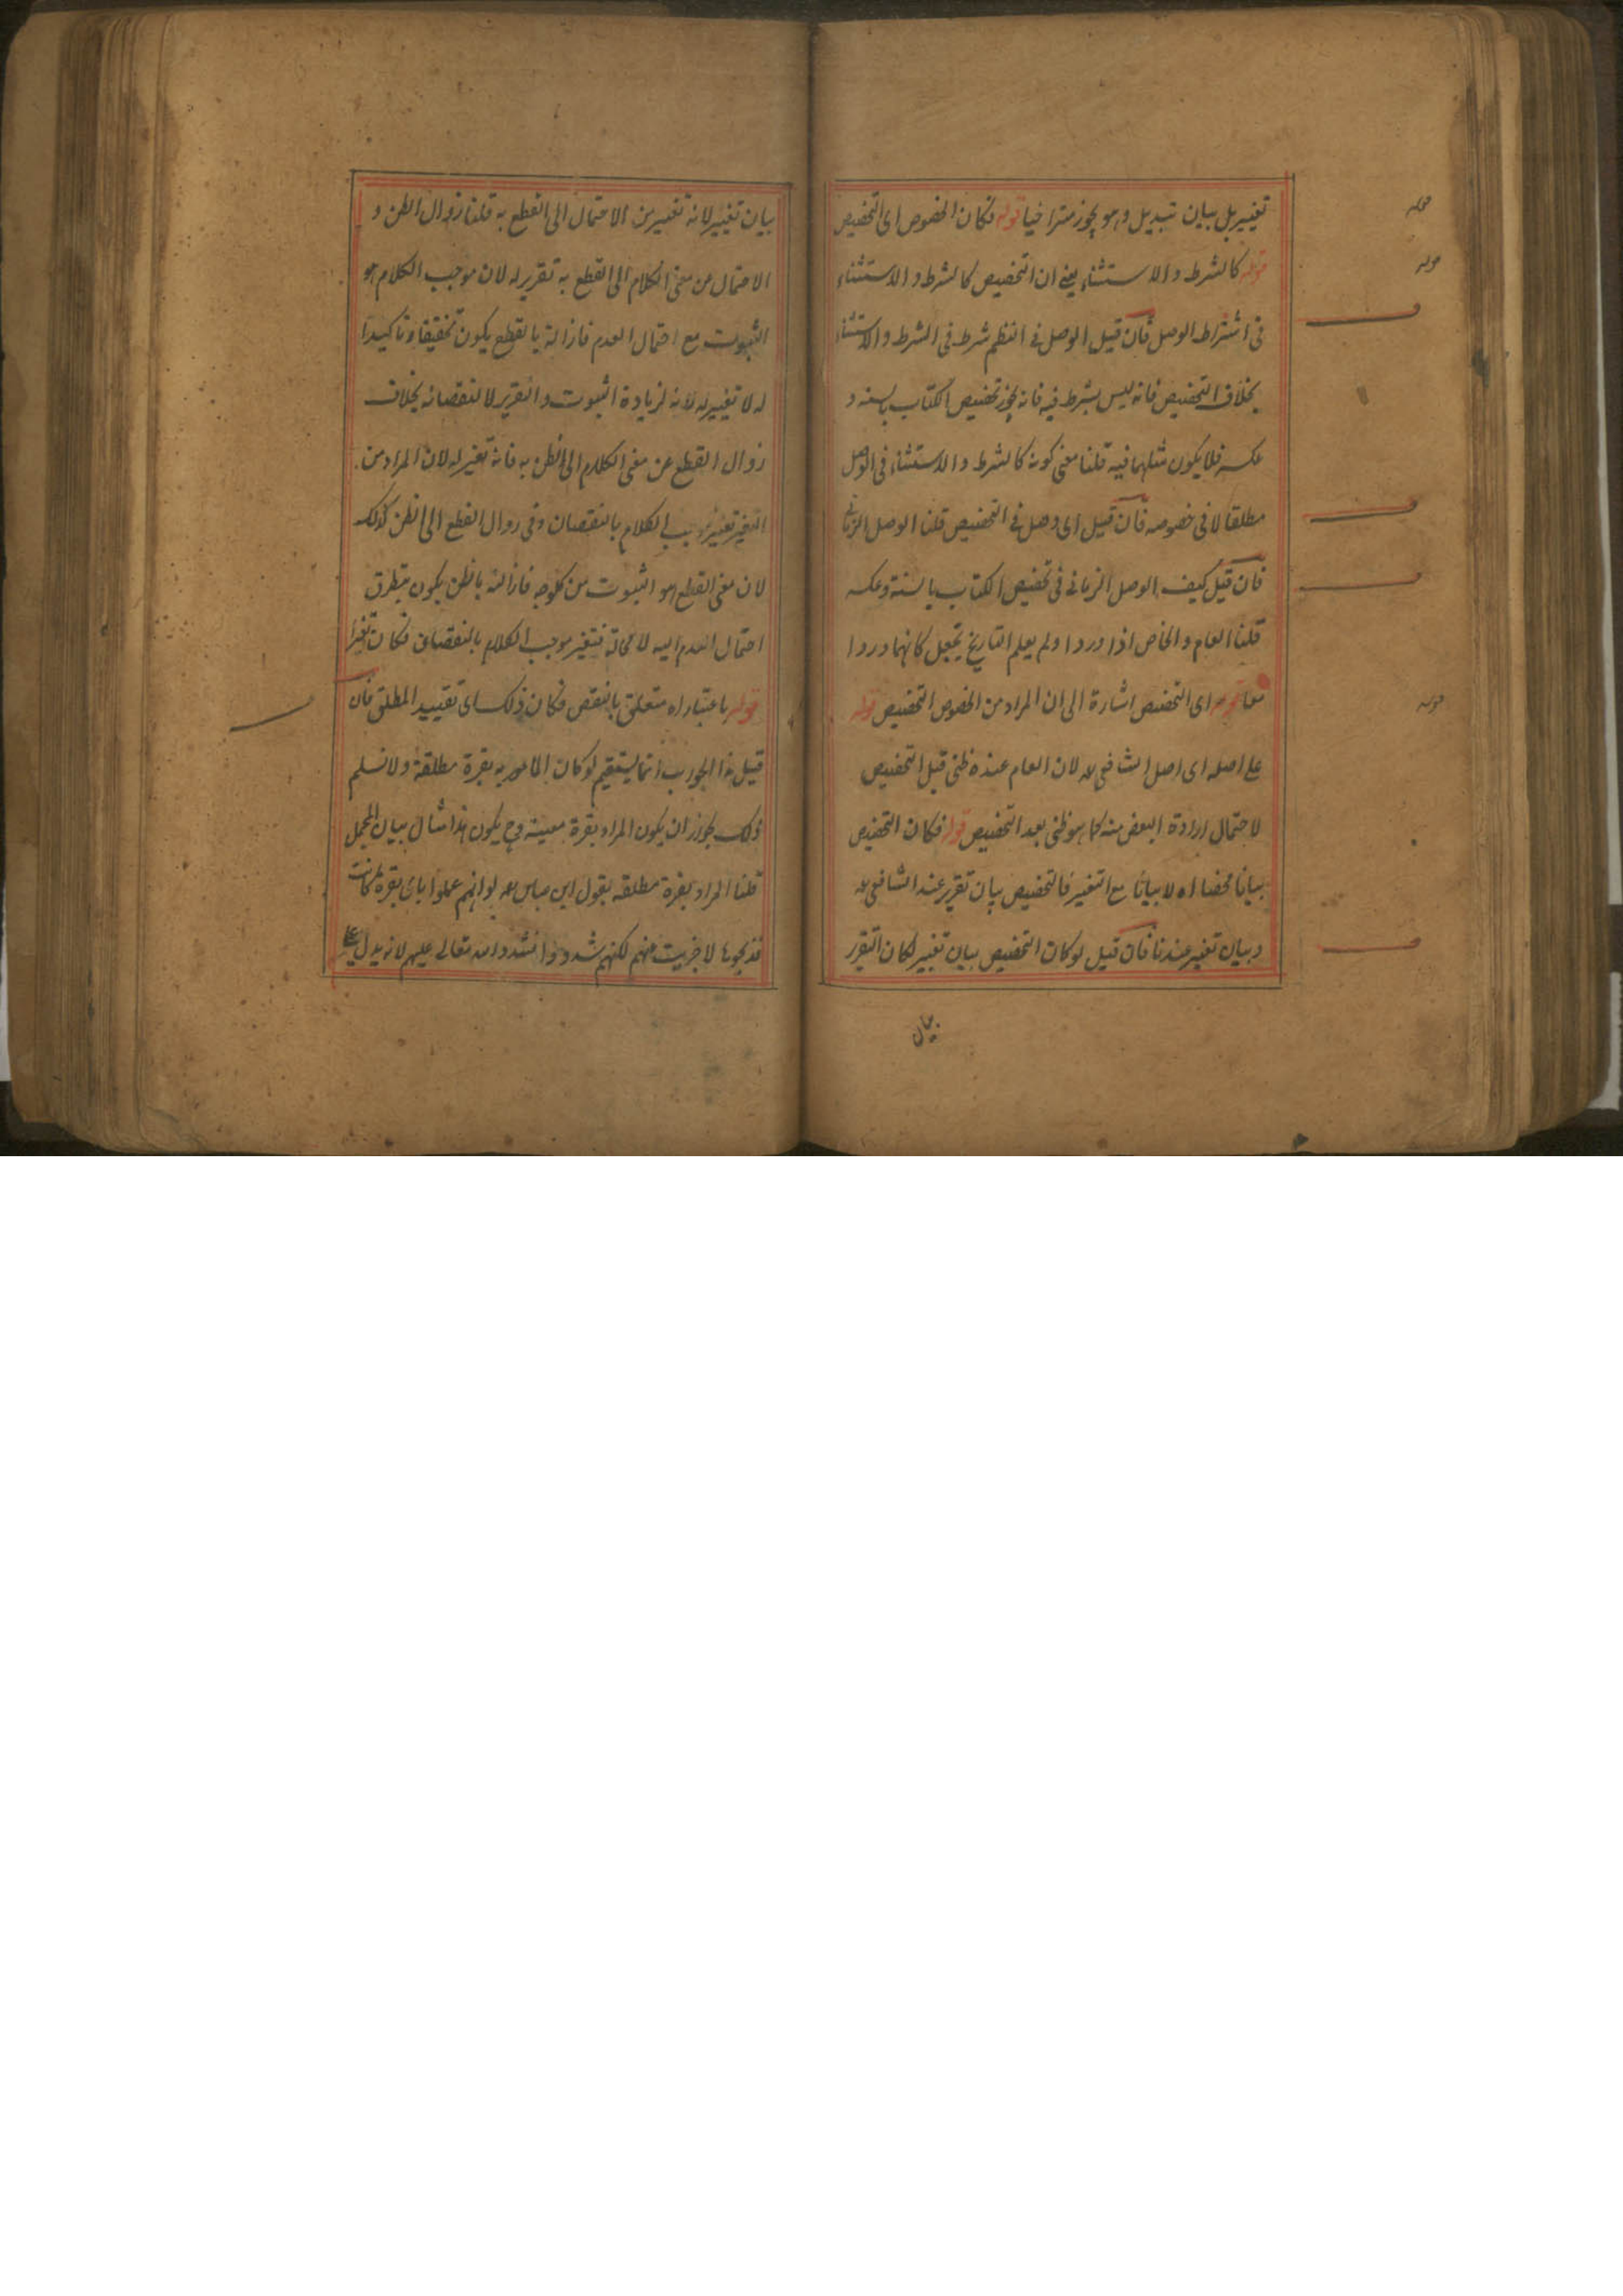 تغيير بل بيان تبديل وهو يجوز متراخيا قوله فكان الخصوص اى التخصيص
قوله كالشرط والاستثناء يعنى ان التخصيص كالشرط والاستثناء
فى اشتراط الوصل فان قيل الوصل فى النظم شرط فى الشرط والاستثناء
بخلاف التخصيص فانه ليس بشرط فيه فانه يجوز تخصيص الكتاب بالسنة و
عكسه فلا يكون مثلهما فيه قلنا معنى كونه كالشرط والاستثناء فى الوصل
مطلقا لا فى خصوصه فان قيل اى وصل فى التخصيص قلنا الوصل الزمانى
فان قيل كيف الوصل الزمانى فى تخصيص الكتاب بالسنة وعكسه
قلنا العام والخاص اذا وردا ولم يعلم التاريخ يجعل كانهما وردا
معا قوله اى التخصيص اشارة الى ان المراد من الخصوص التخصيص قوله
على اصله اى اصل الشافعى رح لان العام عنده ظنى قبل التخصيص
لاحتمال ارادة البعض منه كما هو ظنى بعد التخصيص قوله فكان التخصيص
بيانا محضا اه لا بيانا مع التغيير فالتخصيص بيان تقرير عند الشافعى رح
وبيان تغيير عندنا فان قيل لو كان التخصيص بيان تغيير لكان التقرر
بيان
قوله
قوله
قوله
بيان تغيير لانه تغيير من الاحتمال الى القطع به قلنا زوال الظن و
الاحتمال من معنى الكلام الى القطع به تقرير له لان موجب الكلام هو
الثبوت مع احتمال العدم فازالة بالقطع يكون تحقيقا وتاكيدا
له لا تغيير له لانه لزيادة الثبوت والتقرير لا لنقصانه بخلاف
زوال القطع عن معنى الكلام الى الظن به فانه تغيير له لان المراد من
التغيير تغيير موجب الكلام بالنقصان وفى زوال القطع الى الظن كذلك
لان معنى القطع هو الثبوت من كل وجه فازالته بالظن يكون بتطرق
احتمال العدم اليه لا محالة فتغير موجب الكلام بالنقصان فكان تغييرا
قوله باعتبار اه متعلق بالنقص فكان ذلك اى تقييد المطلق فان
قيل هذا الجواب انما يستقيم لو كان المامور به بقرة مطلقة ولا نسلم
ذلك لجواز ان يكون المراد بقرة معينة وح يكون هذا مثال بيان المجمل
قلنا المراد بقرة مطلقة بقول ابن عباس رضه لو انهم عمدوا باى بقرة كانت
فذبحوها لاجزيت عنهم لكنهم شددوا فشدد الله تعالى عليهم لانه يدل على